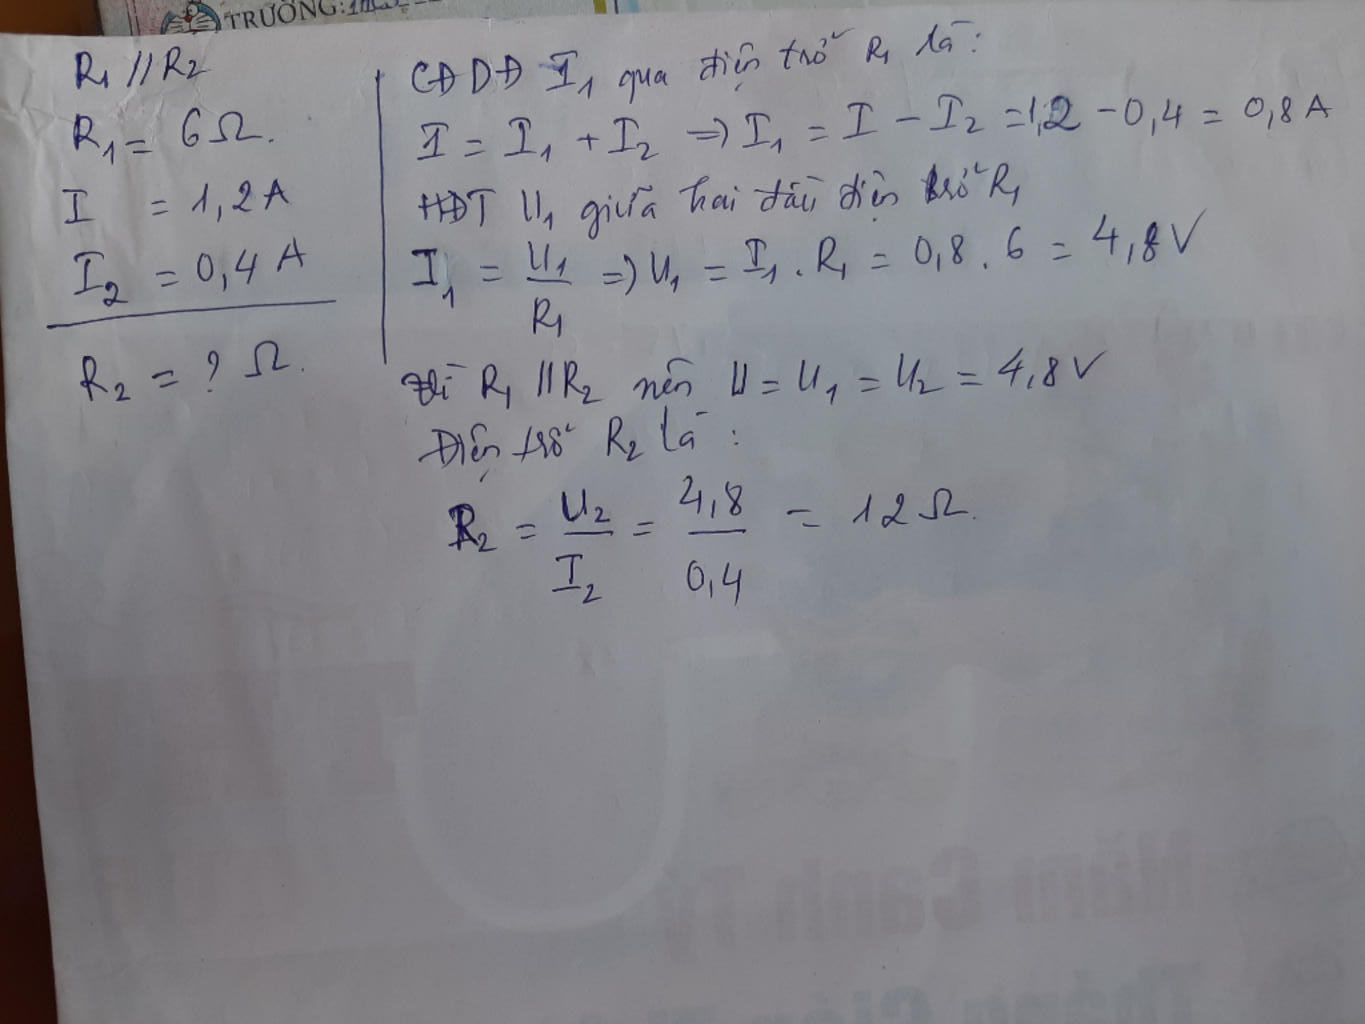 TRƯỜNG:
R₁ // R₂
R₁ = 6 Ω.
I = 1,2 A
I₂ = 0,4 A
R₂ = ? Ω.
CĐDĐ I₁ qua điện trở R₁ là:
I = I₁ + I₂ => I₁ = I - I₂ = 1,2 - 0,4 = 0,8 A
HĐT U₁ giữa hai đầu điện trở R₁
I₁ = U₁/R₁ => U₁ = I₁ . R₁ = 0,8 . 6 = 4,8 V
Vì R₁ // R₂ nên U = U₁ = U₂ = 4,8 V
Điện trở R₂ là :
R₂ = U₂/I₂ = 4,8/0,4 = 12 Ω.
Năm Canh Tý